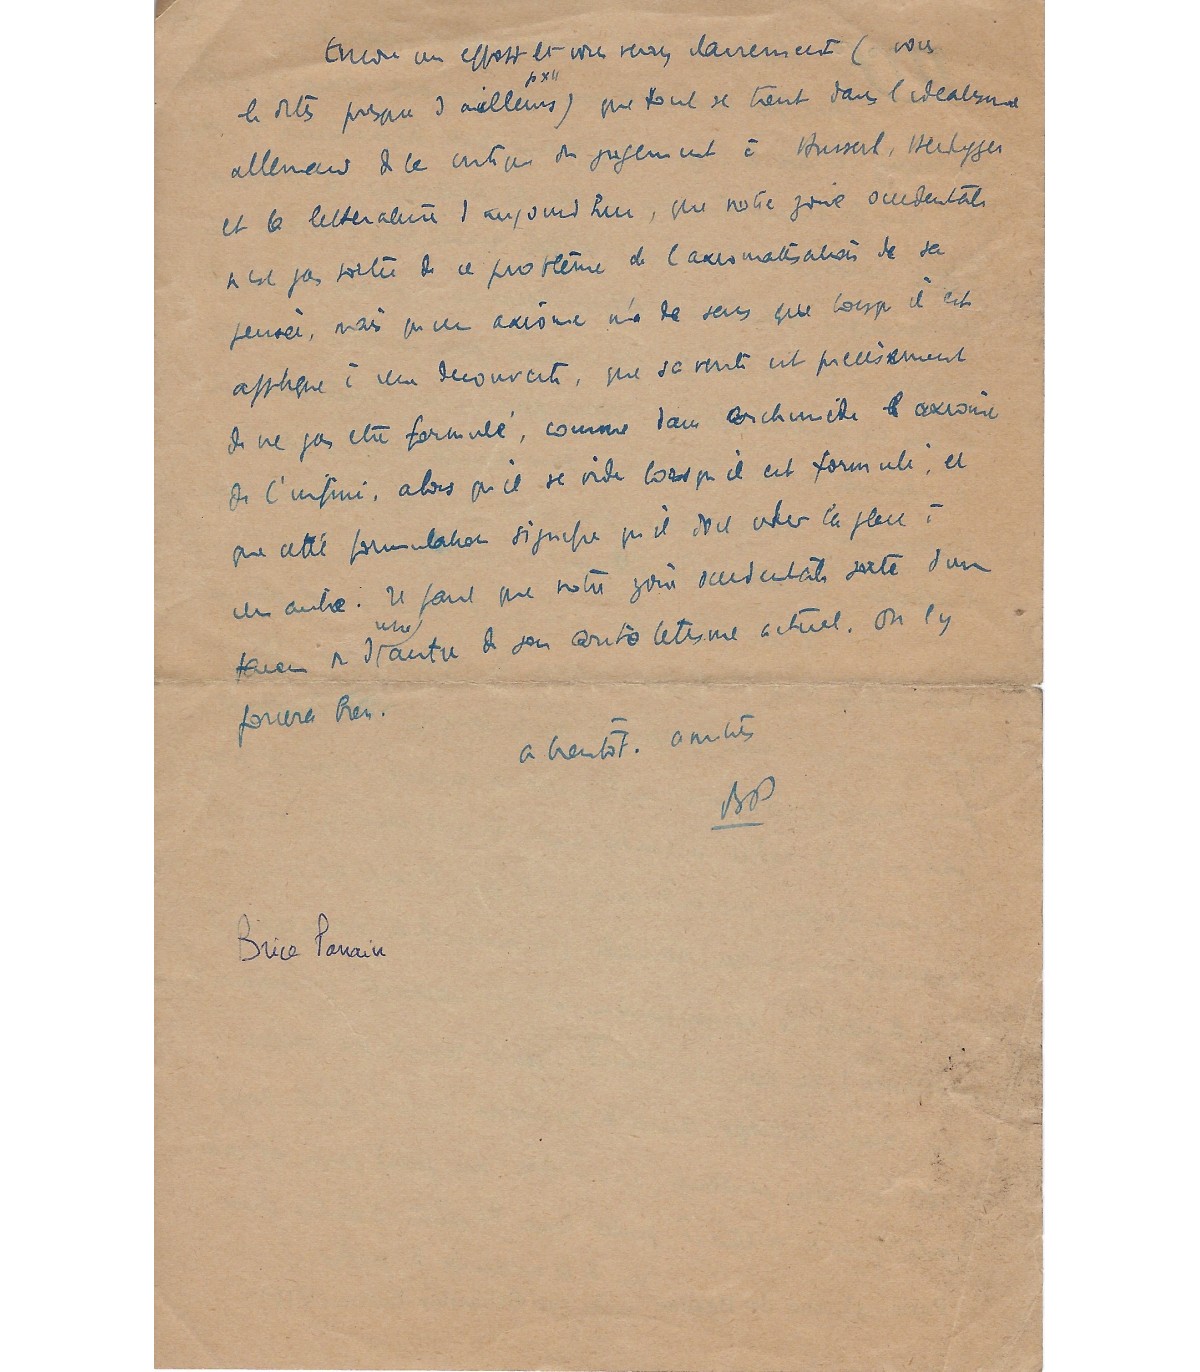 Encore un effort et vous verrez clairement (vous
le dites presque d'ailleurs) que tout se tient dans l'idéalisme
p XII
allemand de la critique du jugement à Husserl, Heidegger
et la littérature d'aujourd'hui, que notre zone occidentale
n'est pas sortie de ce problème de l'axiomatisation de sa
pensée, mais qu'un axiome n'a de sens que lorsqu'il est
appliqué à une découverte, que sa vérité est précisément
de ne pas être formulé, comme dans Archimède l'axiome
de l'infini, alors qu'il se vide lorsqu'il est formulé, et
que cette formulation signifie qu'il doit céder la place à
un autre. Il faut que notre zone occidentale sorte d'une
façon ou d'une autre de son aristotélisme actuel. On l'y
forcera bien.
a bientôt. amitiés
BP
Brice Parain